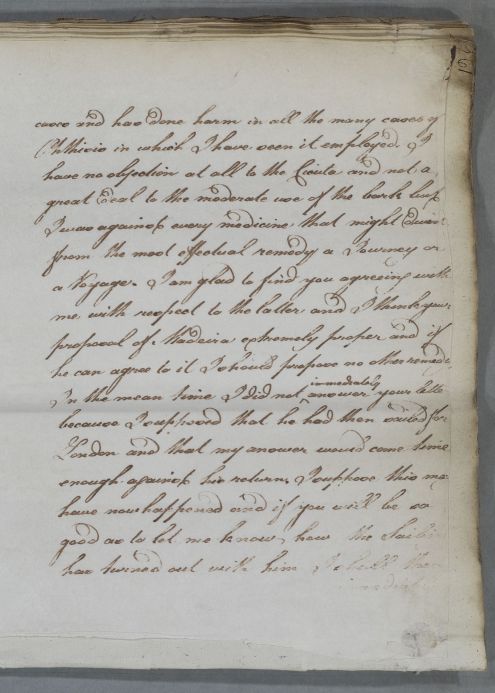 cases and has done harm in all the many cases of
Phthisis in which I have seen it employed. I
have no objection at all to the Cicuta and not a
great deal to the moderate use of the bark but
I was against every medicine that might divert
from the most effectual remedy a Journey or
a Voyage. I am glad to find you agreeing with
me with respect to the latter and I think your
proposal of Madeira extremely proper and if
he can agree to it I should propose no other remedy.
In the mean time I did not immediately answer your letter
because I supposed that he had then sailed for
London and that my answer would come time
enough against his return. I suppose this may
have now happened and if you will be so
good as to let me know, how the Sailing
has turned out with him I shall then